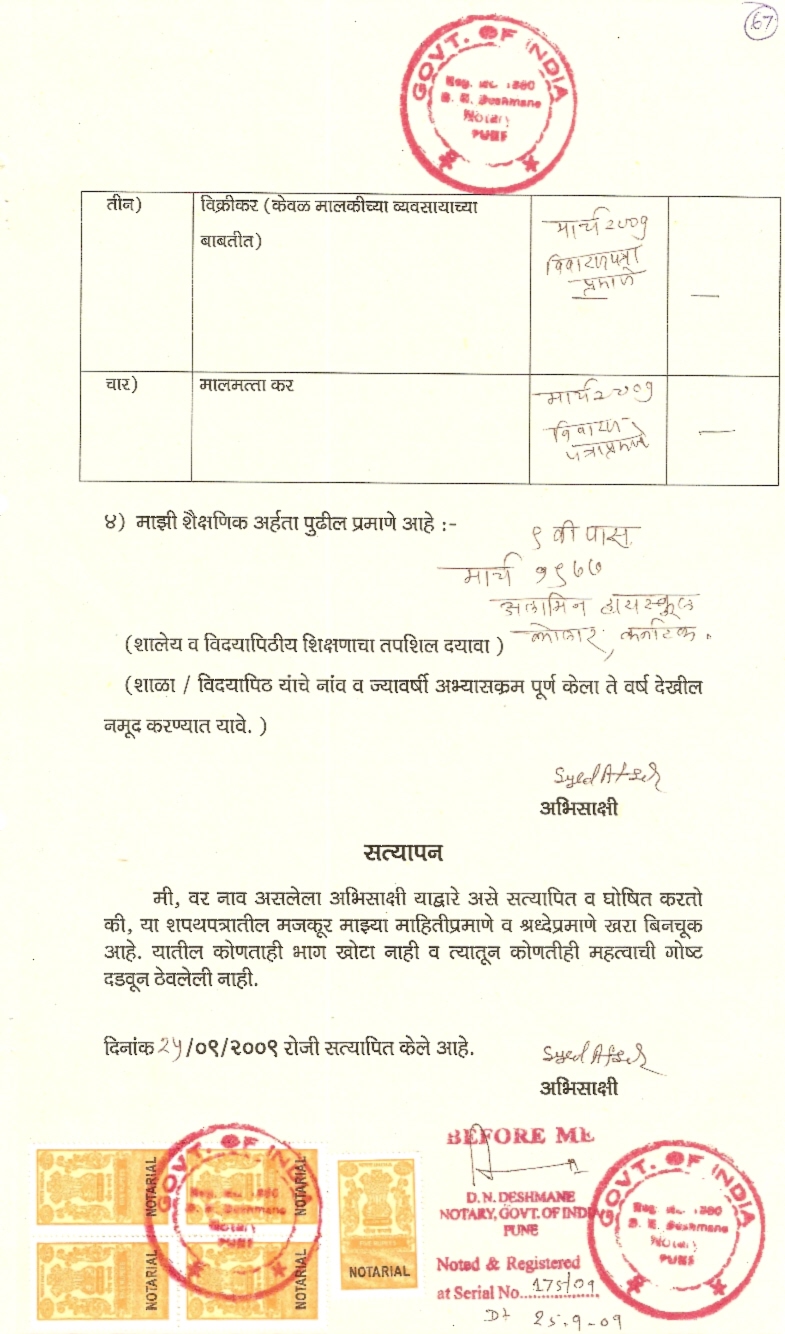 67
GOVT. OF INDIA
Reg. No. 1880
D. N. Deshmane
Notary
PUNE
तीन)
विक्रीकर (केवळ मालकीच्या व्यवसायाच्या
बाबतीत)
मार्च २००९
विवरणपत्रा
प्रमाणे
—
चार)
मालमत्ता कर
मार्च २००९
विवरण
पत्राप्रमाणे
—
४) माझी शैक्षणिक अर्हता पुढील प्रमाणे आहे :-
९ वी पास.
मार्च १९७७
अलामिन हायस्कूल
(शालेय व विदयापिठीय शिक्षणाचा तपशिल दयावा ) कोलार, कर्नाटक.
(शाळा / विदयापिठ यांचे नांव व ज्यावर्षी अभ्यासक्रम पूर्ण केला ते वर्ष देखील
नमूद करण्यात यावे. )
Syed Afser
अभिसाक्षी
सत्यापन
मी, वर नाव असलेला अभिसाक्षी याद्वारे असे सत्यापित व घोषित करतो
की, या शपथपत्रातील मजकूर माझ्या माहितीप्रमाणे व श्रध्देप्रमाणे खरा बिनचूक
आहे. यातील कोणताही भाग खोटा नाही व त्यातून कोणतीही महत्वाची गोष्ट
दडवून ठेवलेली नाही.
दिनांक २५/०९/२००९ रोजी सत्यापित केले आहे.
Syed Afser
अभिसाक्षी
NOTARIAL
NOTARIAL
NOTARIAL
NOTARIAL
NOTARIAL
GOVT. OF INDIA
Notary
PUNE
BEFORE ME
D. N. DESHMANE
NOTARY, GOVT. OF INDIA
PUNE
Noted & Registered
at Serial No. 175/09
Dt 25.9-09
GOVT. OF INDIA
D. N. Deshmane
Notary
PUNE